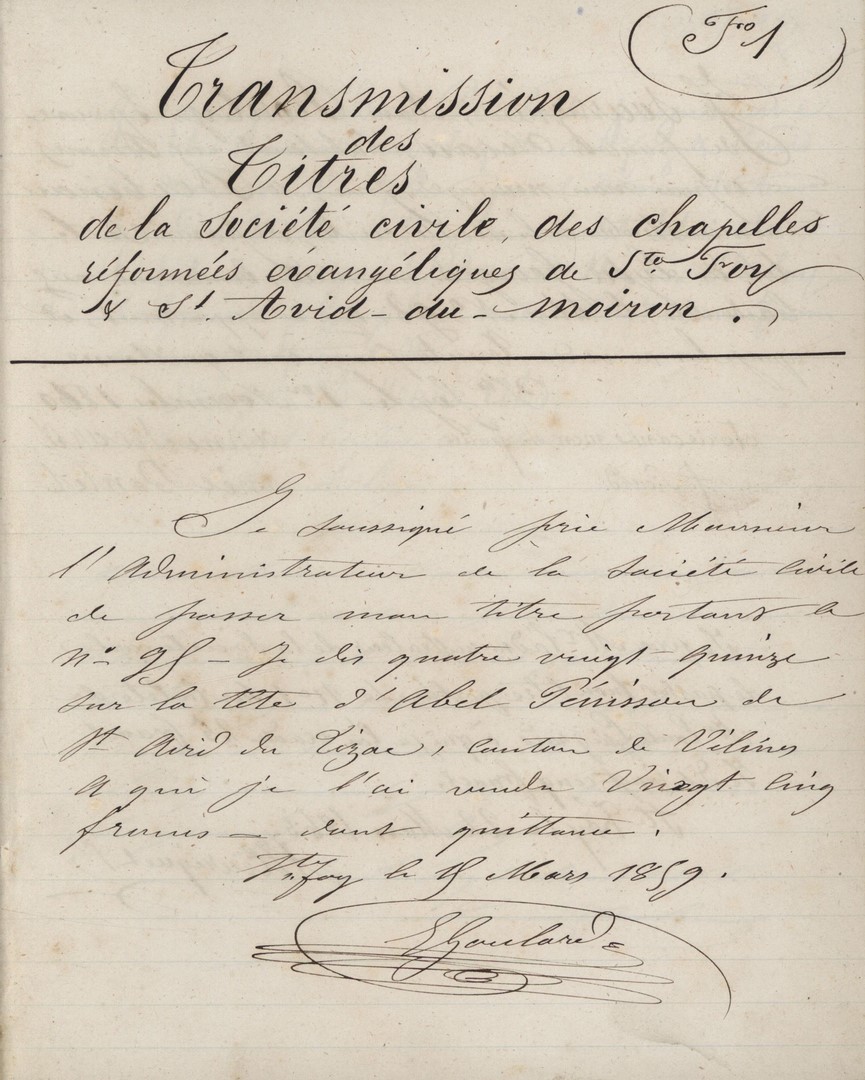 Fo 1
Transmission
des
Titres
de la Société civile, des chapelles
réformées évangéliques de Ste. Foy
& St. Avid-du-Moiron.
Je soussigné prie Monsieur
l'Administrateur de la Société Civile
de passer mon titre portant le
no. 95 - Je dis quatre vingt quinze
sur la tête d'Abel Pénisson de
St Avid du Tizac, canton de Vélines
a qui je l'ai vendu Vingt cinq
francs - dont quittance.
Ste. foy le 15 Mars 1859.
E Goulard